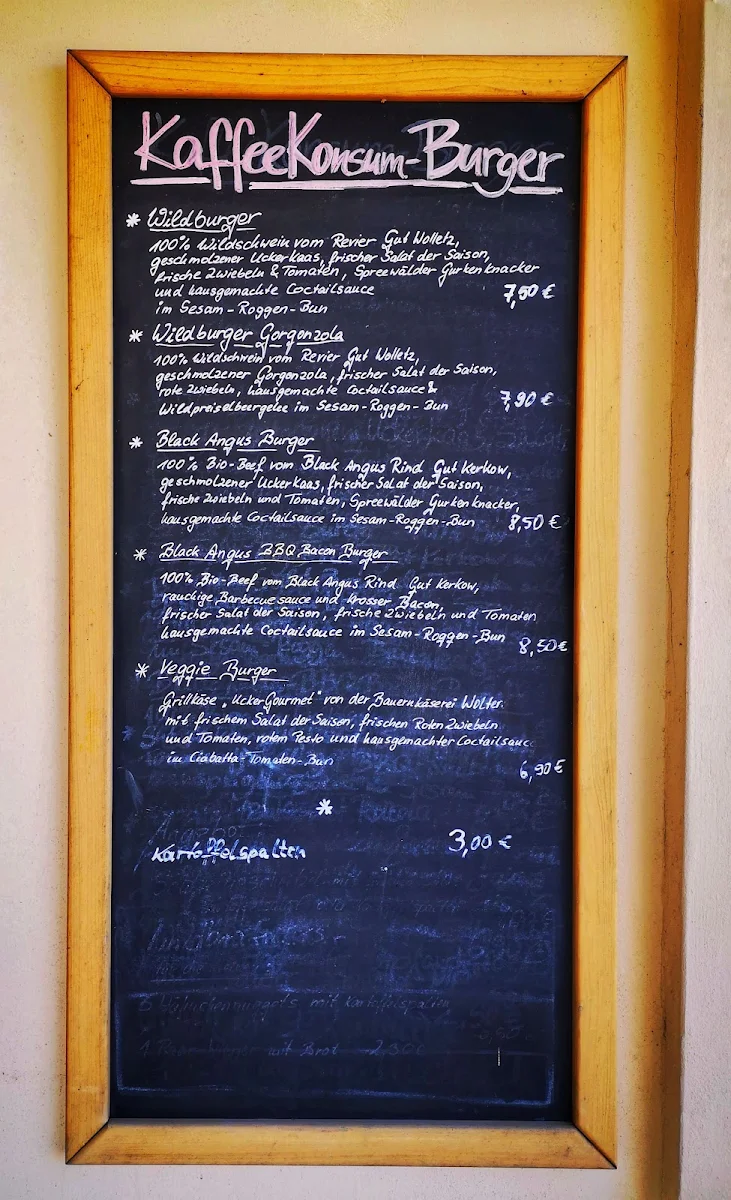 KaffeeKonsum-Burger
* Wildburger
100% Wildschwein vom Revier Gut Wolletz,
geschmolzener Uckerkaas, frischer Salat der Saison,
frische Zwiebeln & Tomaten, Spreewälder Gurkenknacker
und hausgemachte Coctailsauce
7,50 €
im Sesam-Roggen-Bun
* Wildburger Gorgonzola
100% Wildschwein vom Revier Gut Wolletz,
geschmolzener Gorgonzola, frischer Salat der Saison,
rote Zwiebeln, hausgemachte Coctailsauce &
Wildpreiselbeergelee im Sesam-Roggen-Bun
7,90 €
* Black Angus Burger
100% Bio-Beef vom Black Angus Rind Gut Kerkow,
geschmolzener Uckerkaas, frischer Salat der Saison,
frische Zwiebeln und Tomaten, Spreewälder Gurkenknacker,
hausgemachte Coctailsauce im Sesam-Roggen-Bun 8,50 €
* Black Angus BBQ Bacon Burger
100% Bio-Beef vom Black Angus Rind Gut Kerkow,
rauchige Barbecuesauce und krosser Bacon,
frischer Salat der Saison, frische Zwiebeln und Tomaten
hausgemachte Coctailsauce im Sesam-Roggen-Bun
8,50 €
* Veggie Burger
Grillkäse „UckerGourmet" von der Bauernkäserei Wolters
mit frischem Salat der Saison, frischen Roten Zwiebeln
und Tomaten, rotem Pesto und hausgemachter Coctailsauce
im Ciabatta-Tomaten-Bun
6,90 €
*
Kartoffelspalten 3,00 €
mit Kartoffelspalten
mit Brot 2,50€